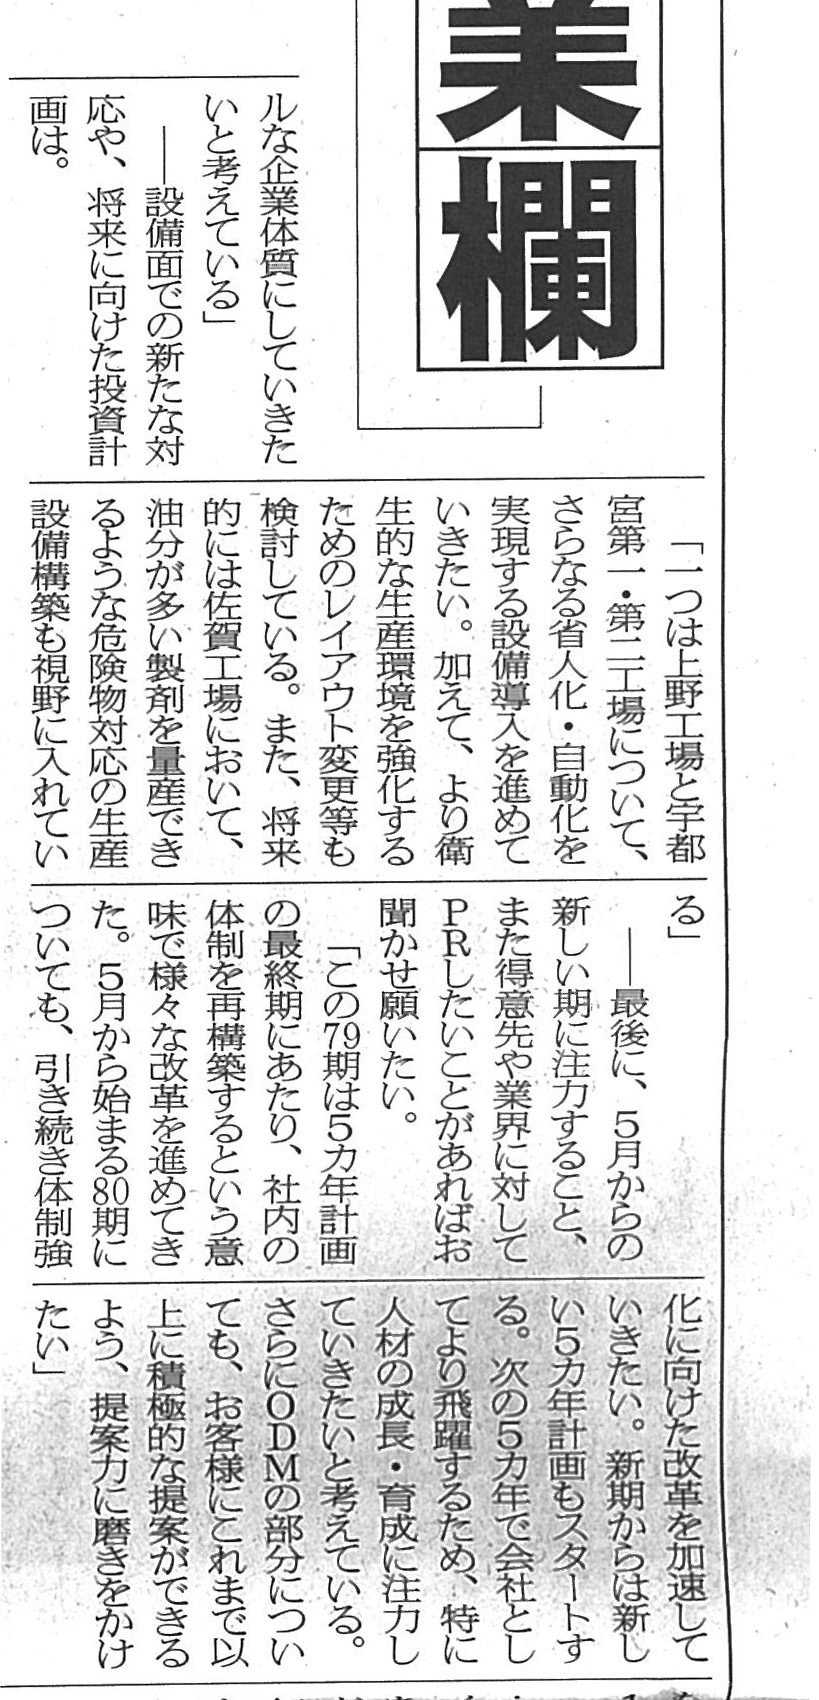 業
欄
ルな企業体質にしていきた
いと考えている」
――設備面での新たな対
応や、将来に向けた投資計
画は。
「一つは上野工場と宇都
宮第一・第二工場について、
さらなる省人化・自動化を
実現する設備導入を進めて
いきたい。加えて、より衛
生的な生産環境を強化する
ためのレイアウト変更等も
検討している。また、将来
的には佐賀工場において、
油分が多い製剤を量産でき
るような危険物対応の生産
設備構築も視野に入れてい
る」
――最後に、５月からの
新しい期に注力すること、
また得意先や業界に対して
ＰＲしたいことがあればお
聞かせ願いたい。
「この79期は５カ年計画
の最終期にあたり、社内の
体制を再構築するという意
味で様々な改革を進めてき
た。５月から始まる80期に
ついても、引き続き体制強
化に向けた改革を加速して
いきたい。新期からは新し
い５カ年計画もスタートす
る。次の５カ年で会社とし
てより飛躍するため、特に
人材の成長・育成に注力し
ていきたいと考えている。
さらにＯＤＭの部分につい
ても、お客様にこれまで以
上に積極的な提案ができる
よう、提案力に磨きをかけ
たい」